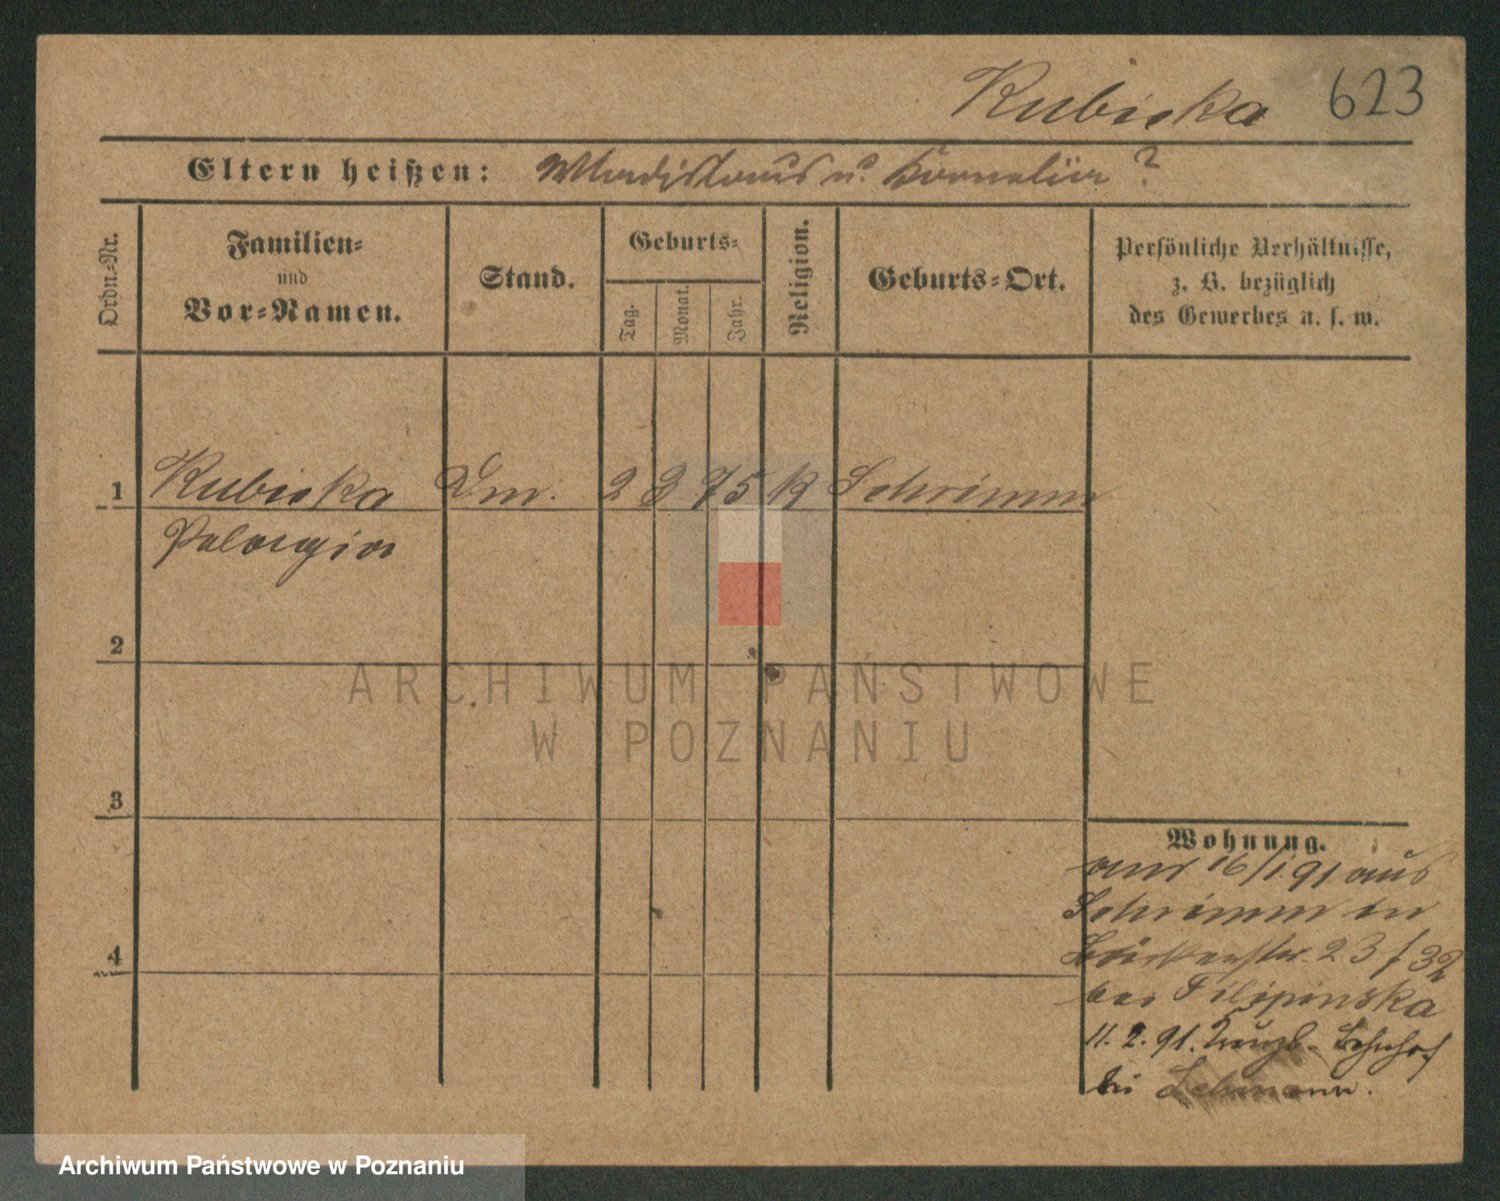 Kubicka 623
Eltern heißen: Wladislaus u. Kornelia ?
Ordn.-Nr.
Familien-
und
Vor-Namen.
Stand.
Geburts-
Tag.
Monat.
Jahr.
Religion.
Geburts-Ort.
Persönliche Verhältnisse,
z. B. bezüglich
des Gewerbes u. s. w.
1 Kubicka Dm. 2 3 75 K Schrimm
Pelagia
2
ARCHIWUM PAŃSTWOWE
W POZNANIU
3
Wohnung.
am 16/1 91 aus
Schrimm in
23/32
bei Filipinska
11. 2. 91. Kreuzb. Bahnhof
bei Lehmann.
4
Archiwum Państwowe w Poznaniu